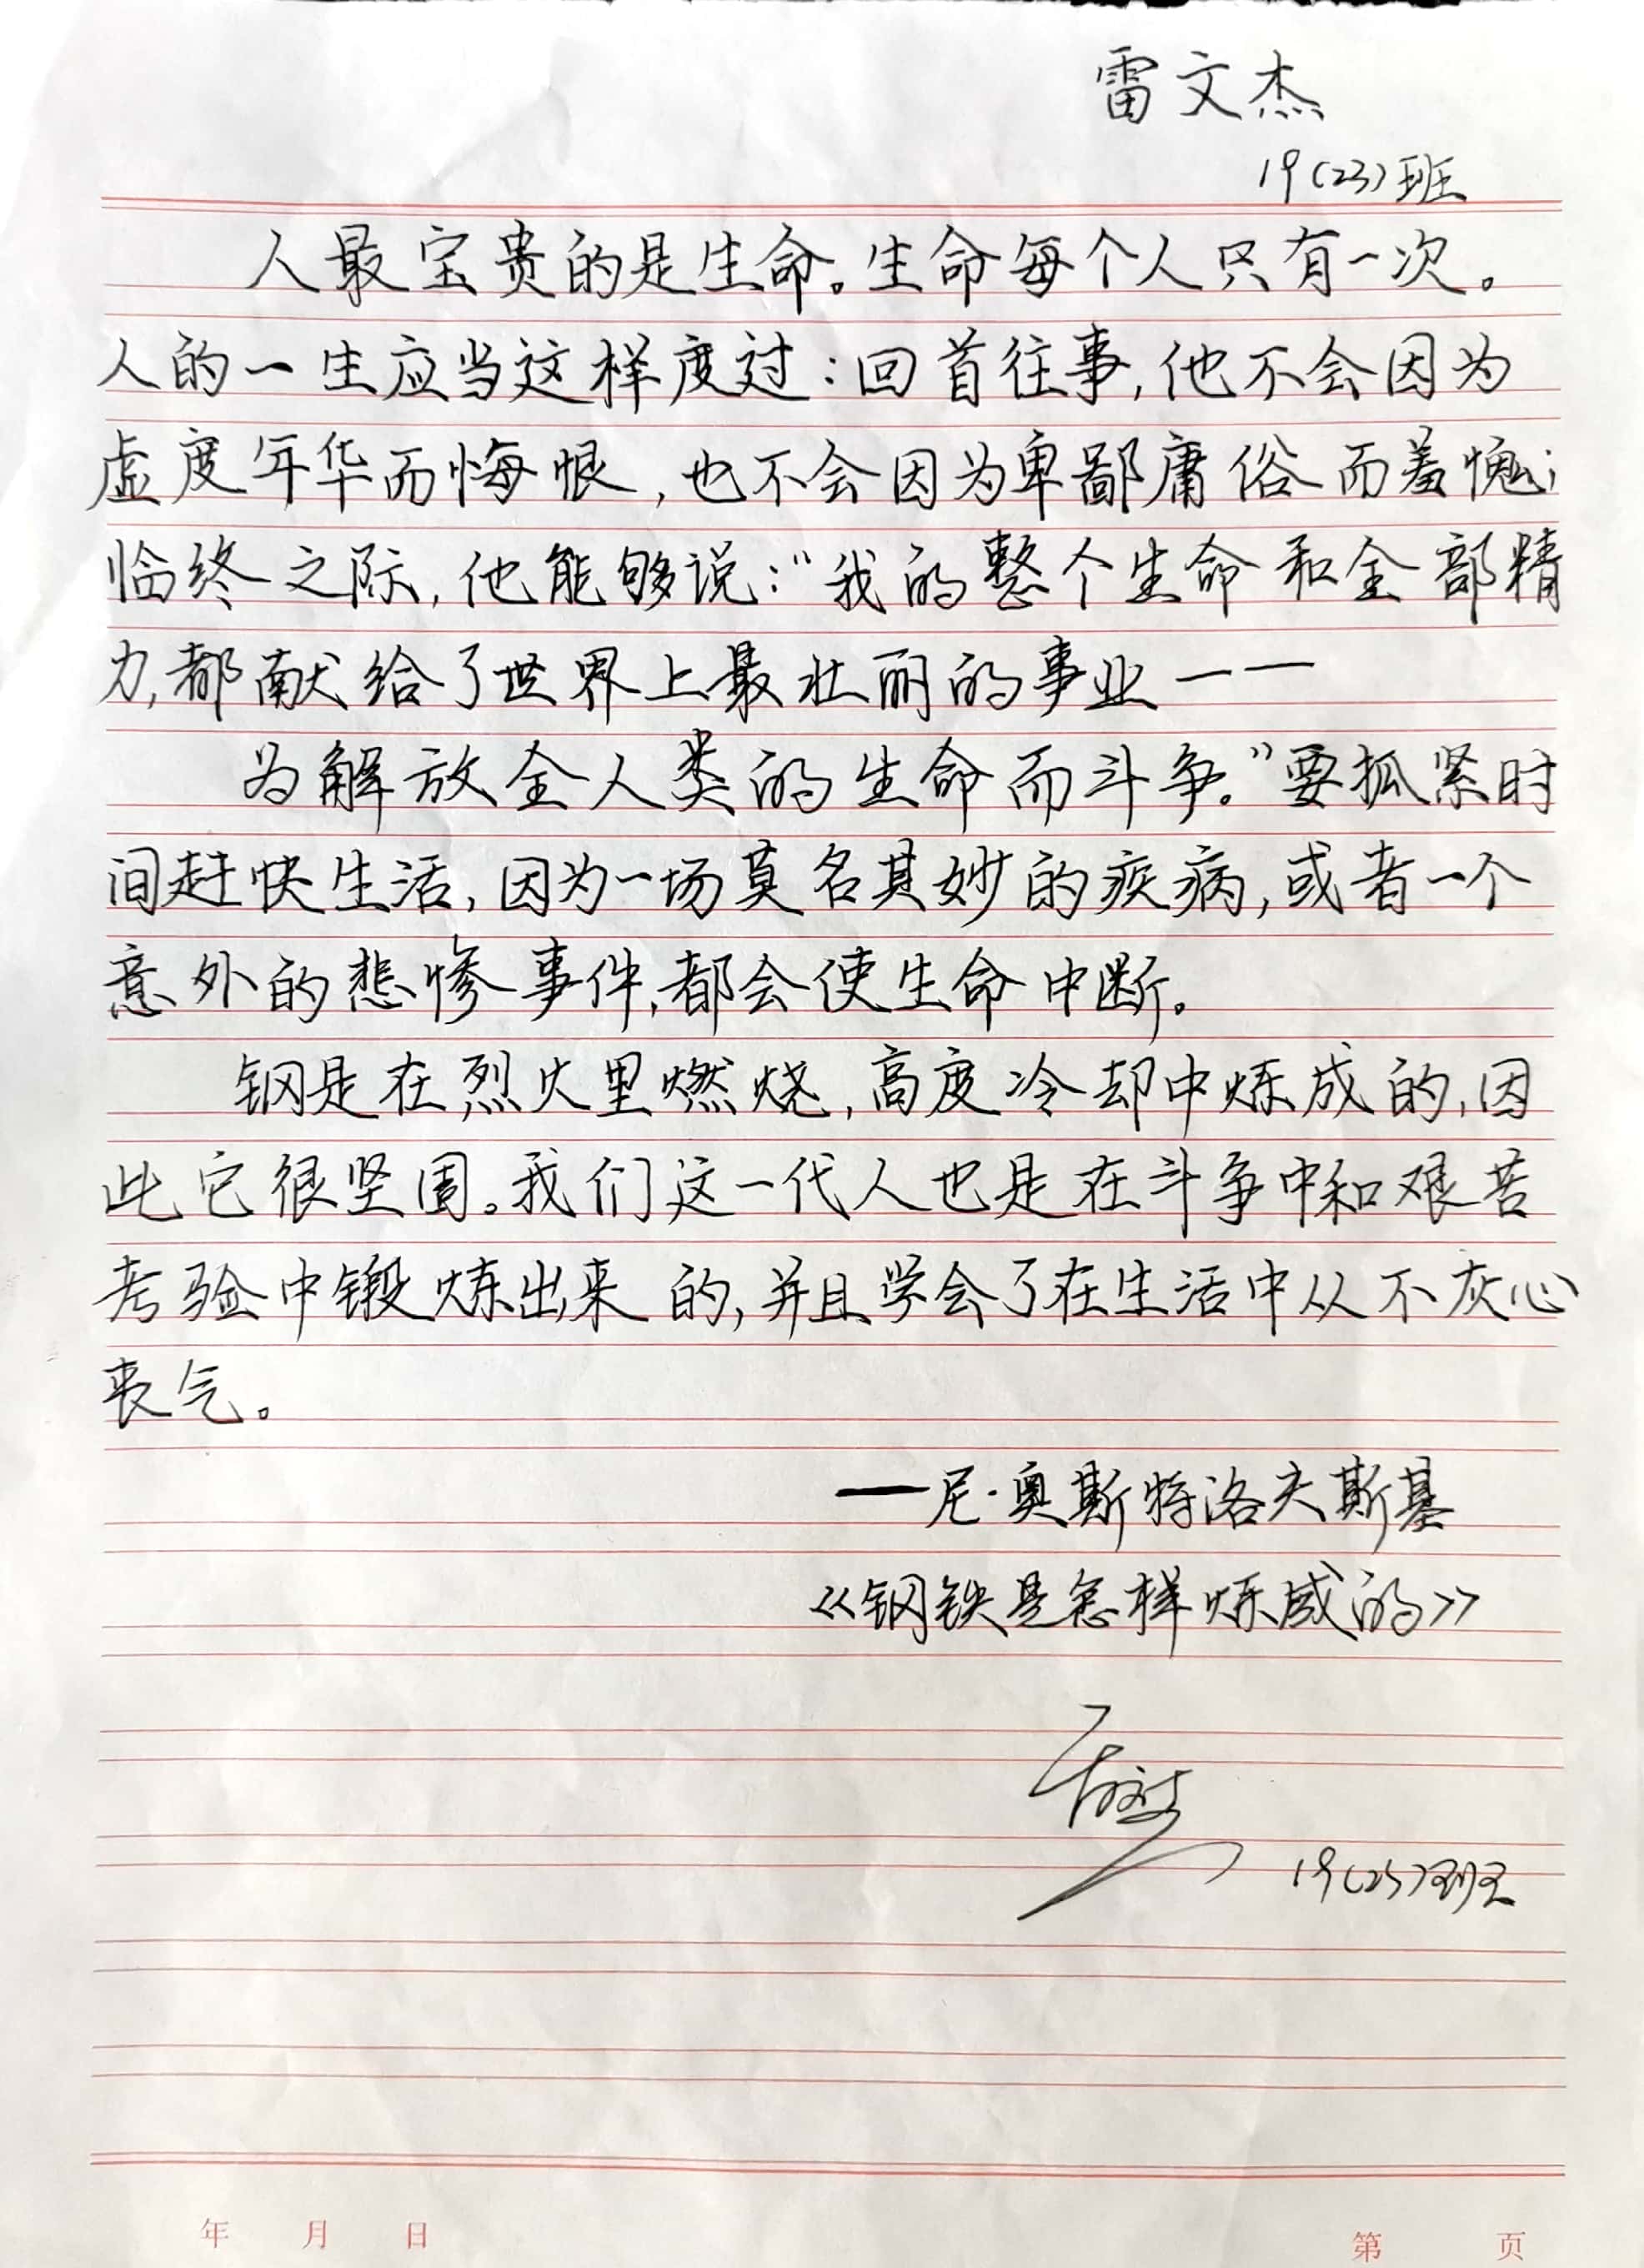 雷文杰
19(23)班
人最宝贵的是生命。生命每个人只有一次。
人的一生应当这样度过:回首往事,他不会因为
虚度年华而悔恨,也不会因为卑鄙庸俗而羞愧;
临终之际,他能够说:“我的整个生命和全部精
力,都献给了世界上最壮丽的事业——
为解放全人类的生命而斗争。”要抓紧时
间赶快生活,因为一场莫名其妙的疾病,或者一个
意外的悲惨事件,都会使生命中断。
钢是在烈火里燃烧,高度冷却中炼成的,因
此它很坚固。我们这一代人也是在斗争中和艰苦
考验中锻炼出来的,并且学会了在生活中从不灰心
丧气。
——尼·奥斯特洛夫斯基
《钢铁是怎样炼成的》
19(23)班
年 月 日
第 页